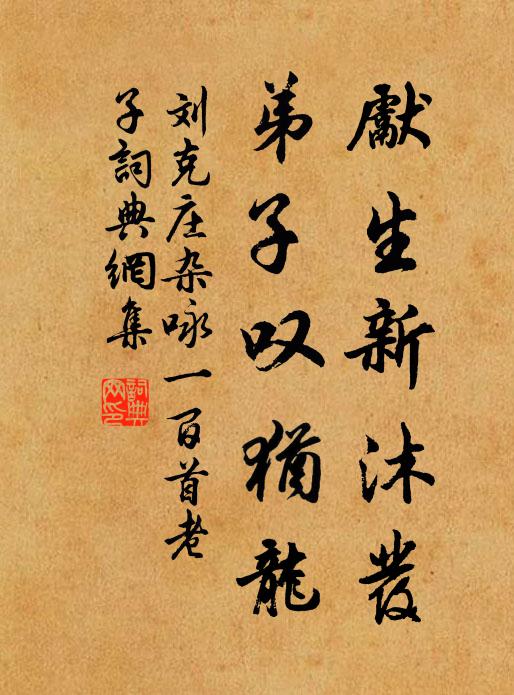 獻生新沐發
弟子叹猶龍
刘克庄杂咏一百首老
子詞典網集
詞典網印